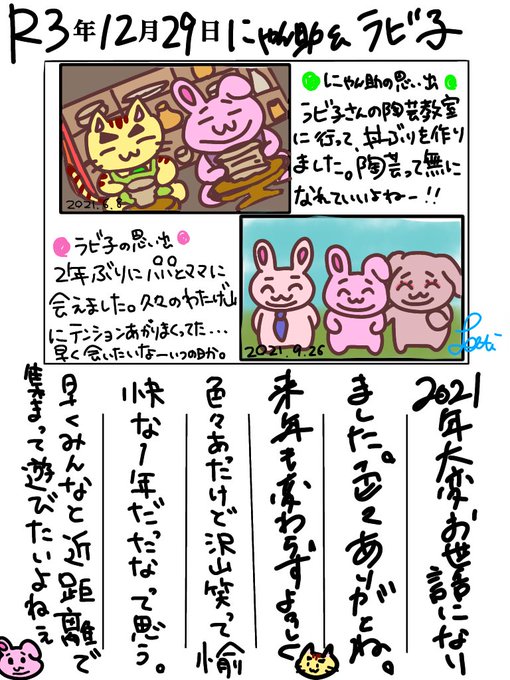 R3年12月29日にゃん助&ラビ子
にゃん助の思い出
ラビ子さんの陶芸教室
に行って、丼ぶりを作り
ました。陶芸って無に
なれていいよねー!!
2021.6.8
ラビ子の思い出
2年ぶりにパパとママに
会えました。久々のわたげ山
にテンションあがりまくってた…
早く会いたいなーいつの日か。
2021.9.26
2021年大変お世話になり
ました。色々ありがとね。
来年も変わらずよろしく
色々あったけど沢山笑って愉
快な1年だったなって思う。
早くみんなと近距離で
集まって遊びたいよねぇ